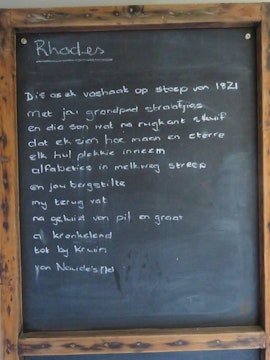 Rhodes
Dis as ek vashaak op stoep van 1821
met jou grondpad straatjies
en die son wat na rugkant skuif
dat ek sien hoe maan en sterre
elk hul plekkie inneem
alfabeties in melkweg streep
en jou bergstilte
my terug vat
na geluid van pyl en graat
al kronkelend
tot by kruin
van Naude's Nek